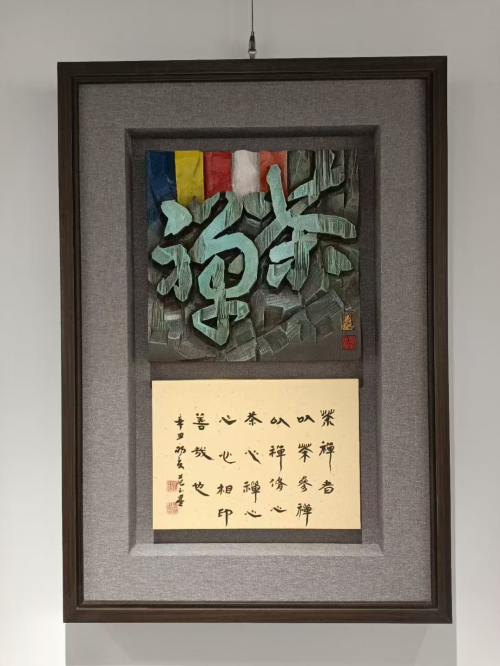 茶禅
茶禪者
以茶參禪
以禪傳心
茶心禪心
心心相印
善哉也
辛丑初夏